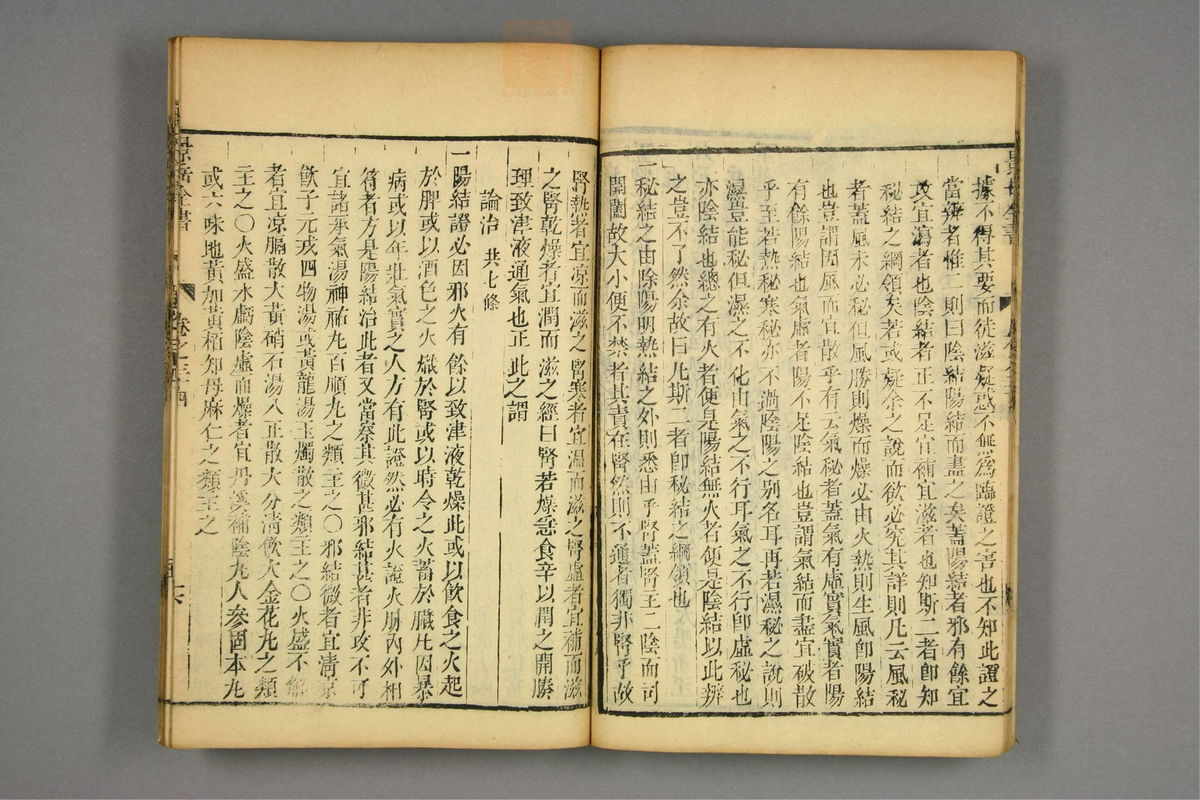 據不得其要而徒滋疑惑不無爲臨證之害也不知此證之
當辨者惟二則曰陰結陽結而盡之矣蓋陽結者邪有餘宜
攻宜瀉者也陰結者正不足宜補宜滋者也知斯二者即知
秘結之綱領矣若或疑余之說而欲必究其詳則凡云風秘
者蓋風未必秘但風勝則燥而燥必由火熱則生風即陽結
也豈謂因風而宜散乎有云氣秘者蓋氣有虛實氣實者陽
有餘陽結也氣虛者陽不足陰結也豈謂氣結而盡宜破散
乎至若熱秘寒秘亦不過陰陽之別名耳再若濕秘之說則
濕豈能秘但濕之不化由氣之不行耳氣之不行即虛秘也
亦陰結也總之有火者便是陽結無火者便是陰結以此辨
之豈不了然余故曰凡斯二者即秘結之綱領也
一秘結之由除陽明熱結之外則悉由乎腎蓋腎主二陰而司
開闔故大小便不禁者其責在腎然則不通者獨非腎乎故
腎熱者宜凉而滋之腎寒者宜溫而滋之腎虛者宜補而滋
之腎乾燥者宜潤而滋之經曰腎若燥急食辛以潤之開腠
理致津液通氣也正此之謂
論治 共七條
一陽結證必因邪火有餘以致津液乾燥此或以飲食之火起
於脾或以酒色之火熾於腎或以時令之火蓄於臟凡因暴
病或以年壯氣實之人方有此證然必有火證火脉內外相
符者方是陽結治此者又當察其微甚邪結甚者非攻不可
宜諸承氣湯神祐丸百順丸之類主之○邪結微者宜清凉
飲子元戎四物湯或黃龍湯玉燭散之類主之○火盛不解
者宜凉膈散大黃硝石湯八正散大分清飲大金花丸之類
主之○火盛水虧陰虛而燥者宜丹溪補陰丸人參固本丸
或六味地黃加黃栢知母麻仁之類主之
景岳全書
卷之三十四
六